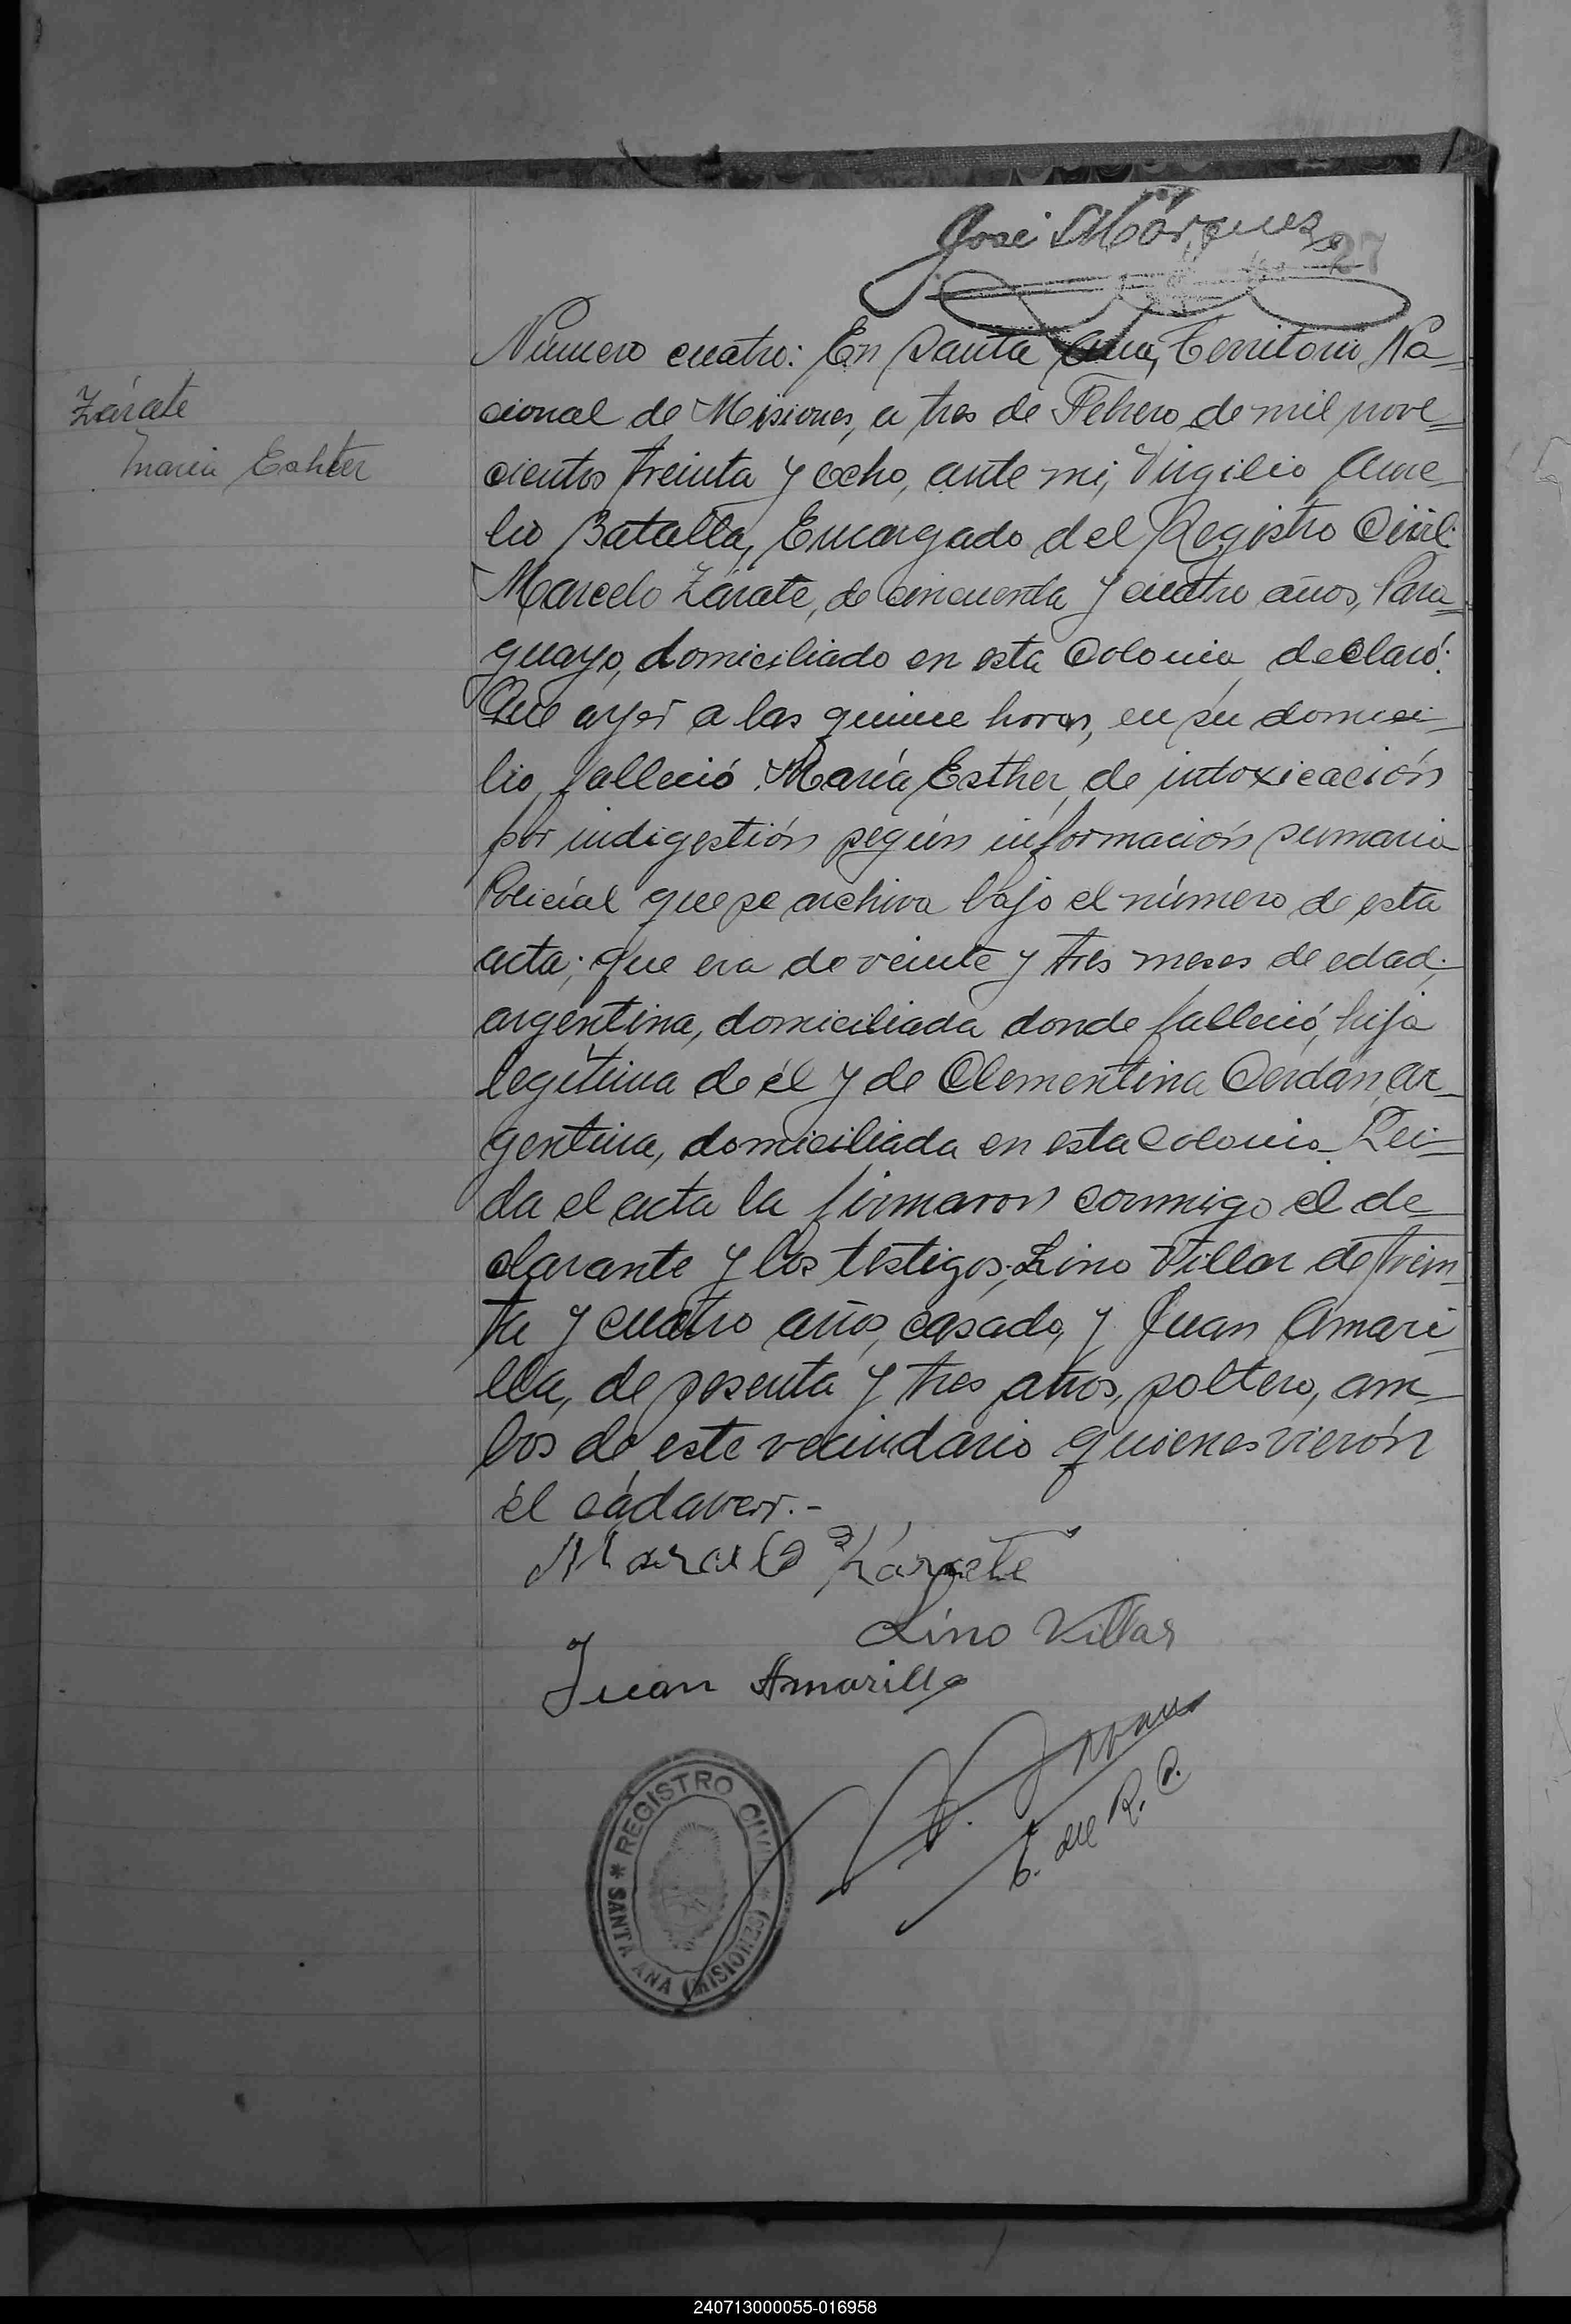 José Márquez
27
Número cuatro: En Santa Ana, Territorio Na-
cional de Misiones, a tres de Febrero de mil nove-
cientos treinta y ocho, ante mi, Virgilio Aure-
lio Batalla, Encargado del Registro Civil:
Marcelo Zárate, de cincuenta y cuatro años, Para-
guayo, domiciliado en esta Colonia, declaró:
Que ayer a las quince horas, en su domici-
lio, falleció María Esther, de intoxicación
por indigestión según información sumaria
Policial que se archiva bajo el número de esta
acta; que era de veinte y tres meses de edad;
argentina, domiciliada donde falleció, hija
legítima de él y de Clementina Cerdán, ar-
gentina, domiciliada en esta Colonia. Lei-
da el acta la firmaron conmigo el de-
clarante y los testigos; Lino Villar de trein-
ta y cuatro años, casado, y Juan Amari-
lla, de sesenta y tres años, soltero, am-
bos de este vecindario quienes vierón
él cádaver.-
Zárate
María Eshter
Marcelo Zárate
Lino Villar
Juan Amarilla
E. del R. C.
REGISTRO CIVIL
* SANTA ANA (MISIONES) *
240713000055-016958